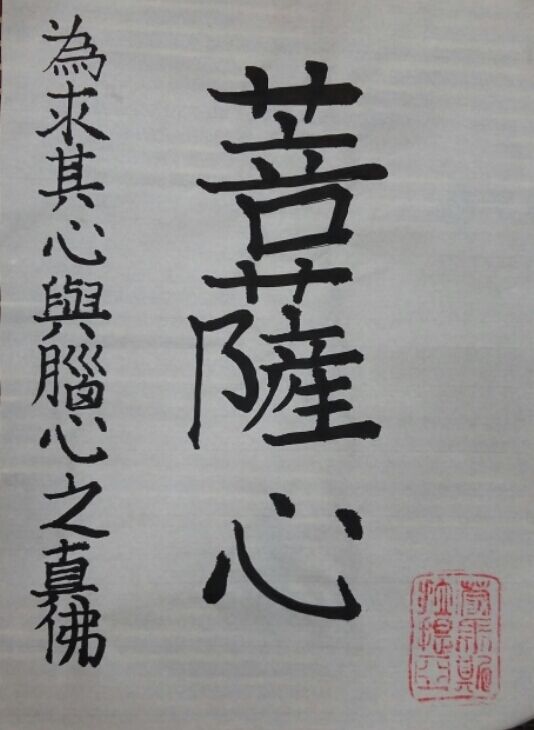 菩薩心
為求其心與腦心之真佛